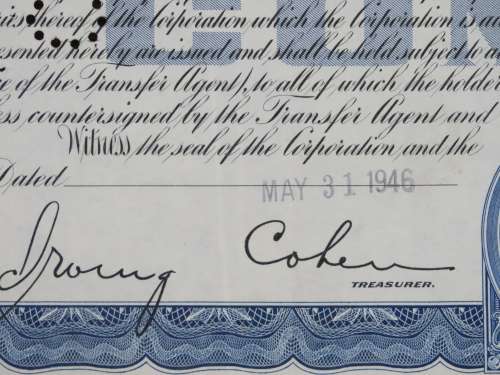 thereof of the Corporation which the Corporation is au
resented hereby are issued and shall be held subject to a
ce of the Transfer Agent), to all of which the holder
ss countersigned by the Transfer Agent and
Witness the seal of the Corporation and the
Dated MAY 31 1946
Irving Cohen
TREASURER.